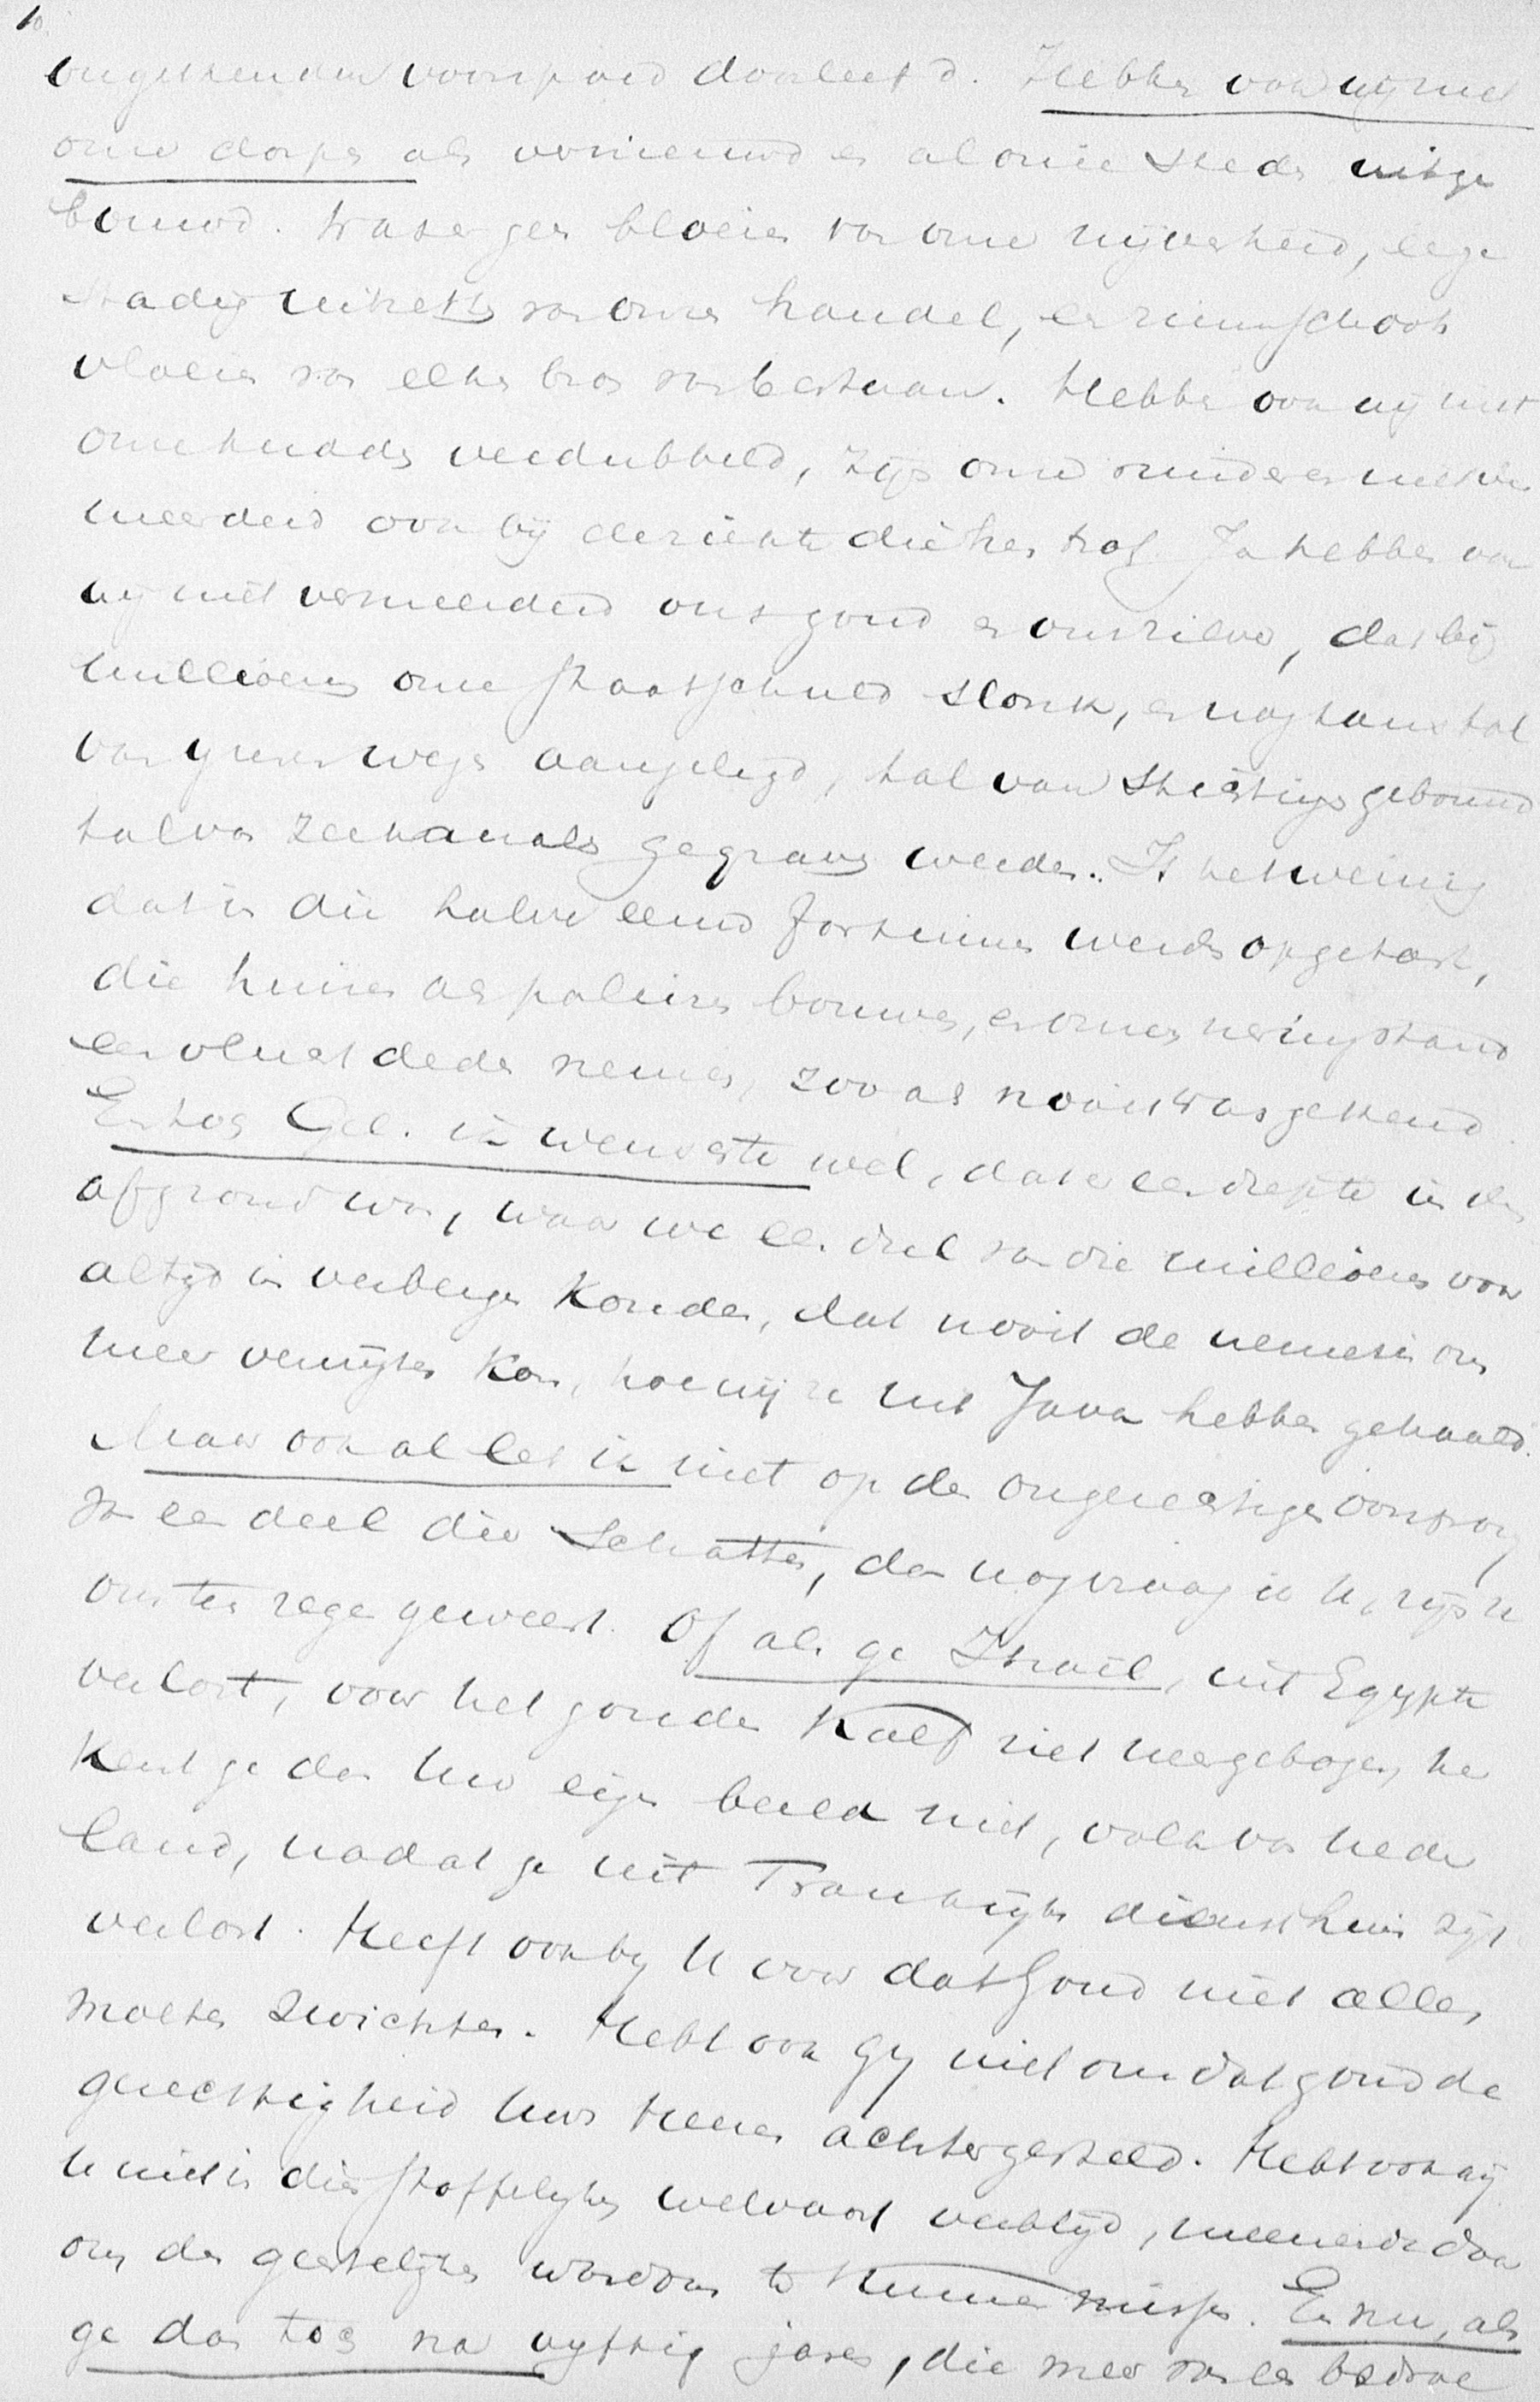 10.
ongekenden voorspoed doorleefd. Hebben ook wij niet
onze dorpen als vernieuwd en al onze steden uitge
bouwd. Was er geen bloeien van onze nijverheid, een
stadig uitzetten van onzen handel, en ruimschoots
vloeien van elke bron van bestaan. Hebben ook wij niet
onze kudden verdubbeld, zijn onze runderen niet ver
meerderd ook bij de ziekte die hen trof. Ja hebben ook
wij niet vermeerderd ons goud en ons zilver, dat bij
millioenen onze staatsschuld slonk, en nogtans tal
van ijzeren wegen aangelegd, tal van stichtingen gebouwd
tal van zeekanalen gegraven werden. Is het weinig
dat in die halve eeuw fortuinen werden opgetast,
die huizen als paleizen bouwen, en onzen neringstand
een vlucht deden nemen, zooals nooit was gekend
En toch Gel. ik wenschte wel, dat er een diepte in den
afgrond was, waar we een deel van die millioenen voor
altijd in verbergen konden, dat nooit de nemesis ons
meer verwijten kon, hoe wij ze uit Java hebben gehaald.
Maar ook al let ik niet op den ongerechtigen oorsprong
van een deel dier schatten, dan nog vraag ik U, zijn ze
ons ten zegen geweest. Of als ge Israël, uit Egypte
verlost, voor het gouden Kalf ziet neergebogen, her
kent ge dan Uw eigen beeld niet, volk van Neder
land, nadat ge uit Frankrijks diensthuis zijt
verlost. Heeft ook bij U voor dat Goud niet alles
moeten zwichten. Hebt ook Gij niet om dat goud de
gerechtigheid Uws Heeren achtergesteld. Hebt ook gij
U niet in die stoffelijke welvaart verblijd, meenende daar
om den geestelijken wasdom te kunnen missen. En nu, als
ge dan toch na vijftig jaren, die meer van een bedroe